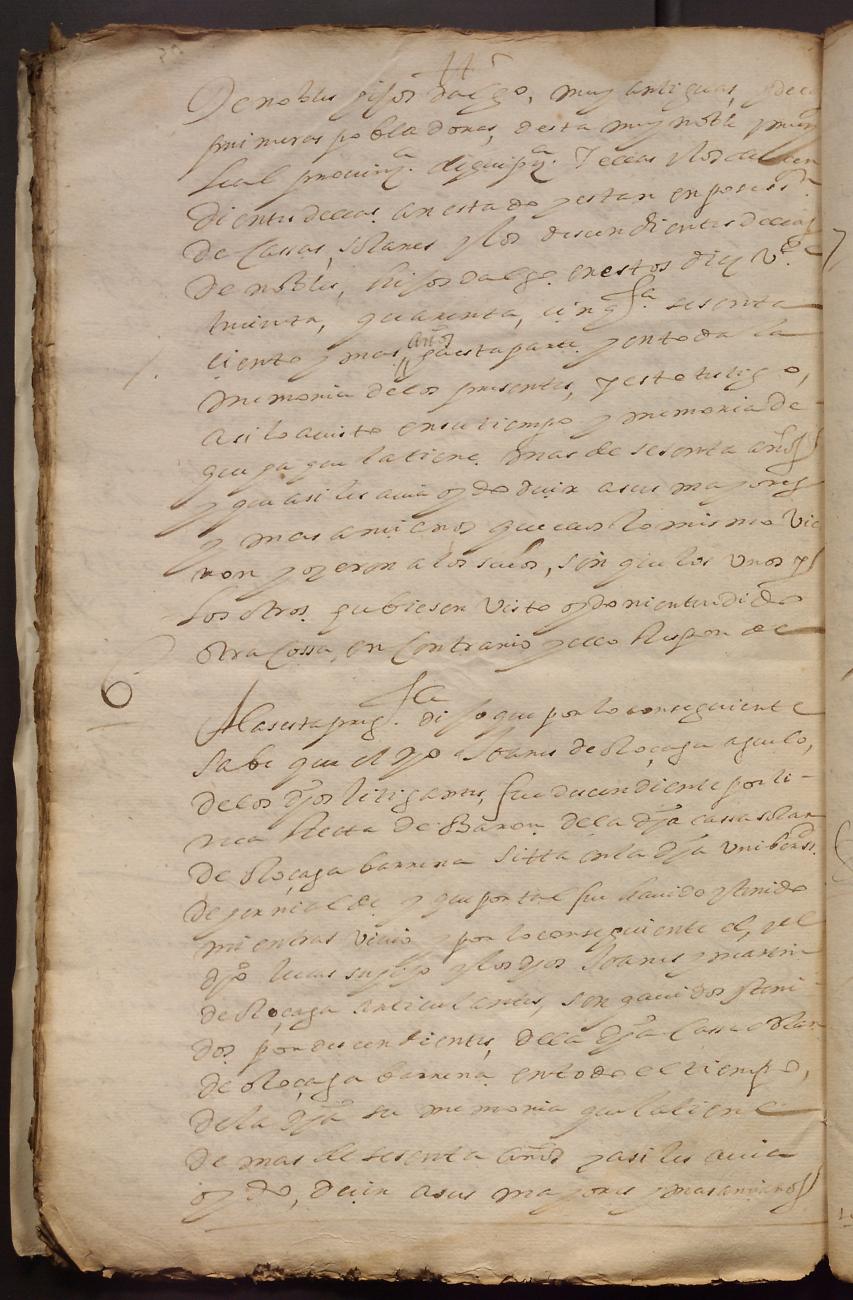 De nobles hijos dalgo, muy antiguas, y de las
primeras pobladoras, desta muy noble y muy
leal provinçª. de guipzª. Y ellas y los decen
dientes dellas an estado y estan en posesiº
de Cassas, solares y los descendientes dellas
De nobles, hijos dalgo en estos diez Vte.
treinta, quarenta, cinqta. sesenta
ciento y mas años a esta parte y en toda la
memoria de los presentes, y este testigo,
asi lo a visto en su tiempo y memoria de
que ya que la tiene mas de sesenta años
y que asi les avia oydo deçir a sus mayores
y mas ancianos que ellos lo mismo vie
ron y oyeron a los suios, sin que los unos y
los otros hubiesen visto oydo ni entendido
otra Cossa, en Contrario y esto Responde
6
A la sesta pregta. dijo que por lo conseguiente
sabe que el dho Joanes de Oloçaga aguelo,
de los dhos litigantes, fue decendiente por li
nea Recta de Baron de la dha cassa solar
de Oloçaga barrena sitta en la dha unibersd.
de yernialde y que por tal fue havido y tenido
mientras vivio y por lo conseguiente el, y el
dho lucas su hijo y los dhos Joanes y martin
de Oloçaga articulantes, son havidos y teni
dos por descendientes, de la dha Cassa solar
de Oloçaga barrena en todo el tiempo,
de la dha su memoria que la tiene
de mas de sesenta años y asi les avia
oydo, deçir a sus mayores y mas ancianos